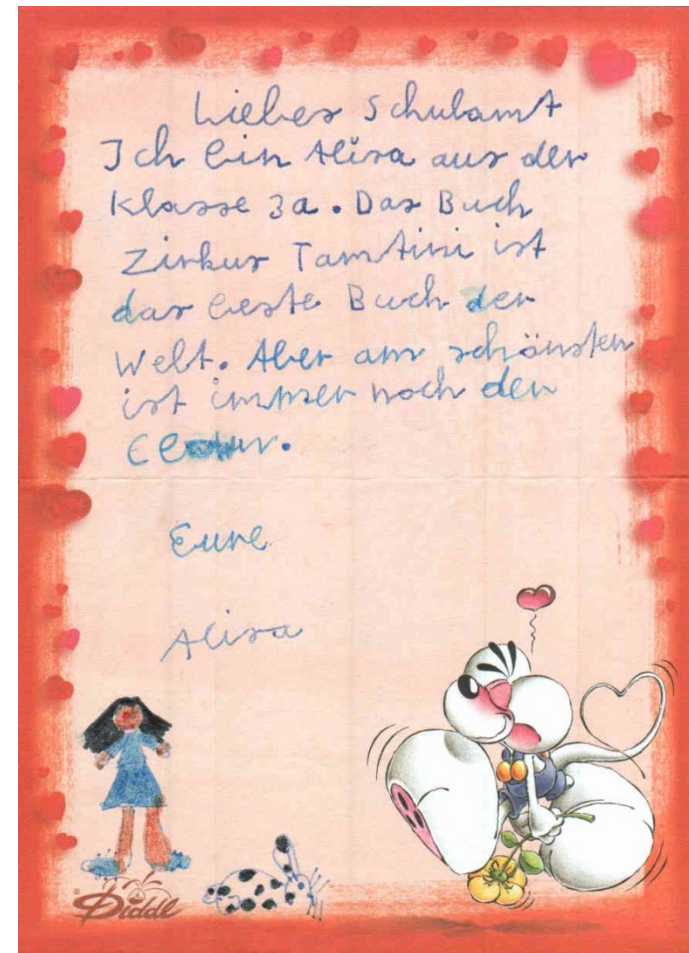 Liebes Schulamt
Ich bin Alisa aus der
Klasse 3a. Das Buch
Zirkus Tamtini ist
das beste Buch der
Welt. Aber am schönsten
ist immer noch der
Clown.
Eure
Alisa
Diddl